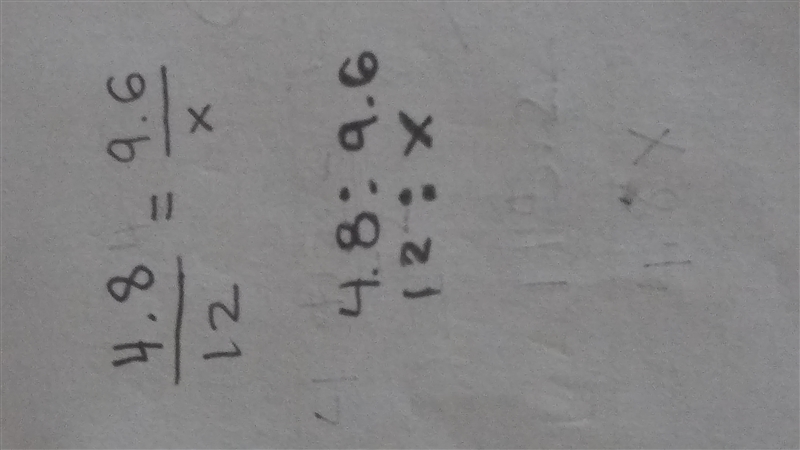 4.8 = 9.6
12 x
4.8 : 9.6
12 : x